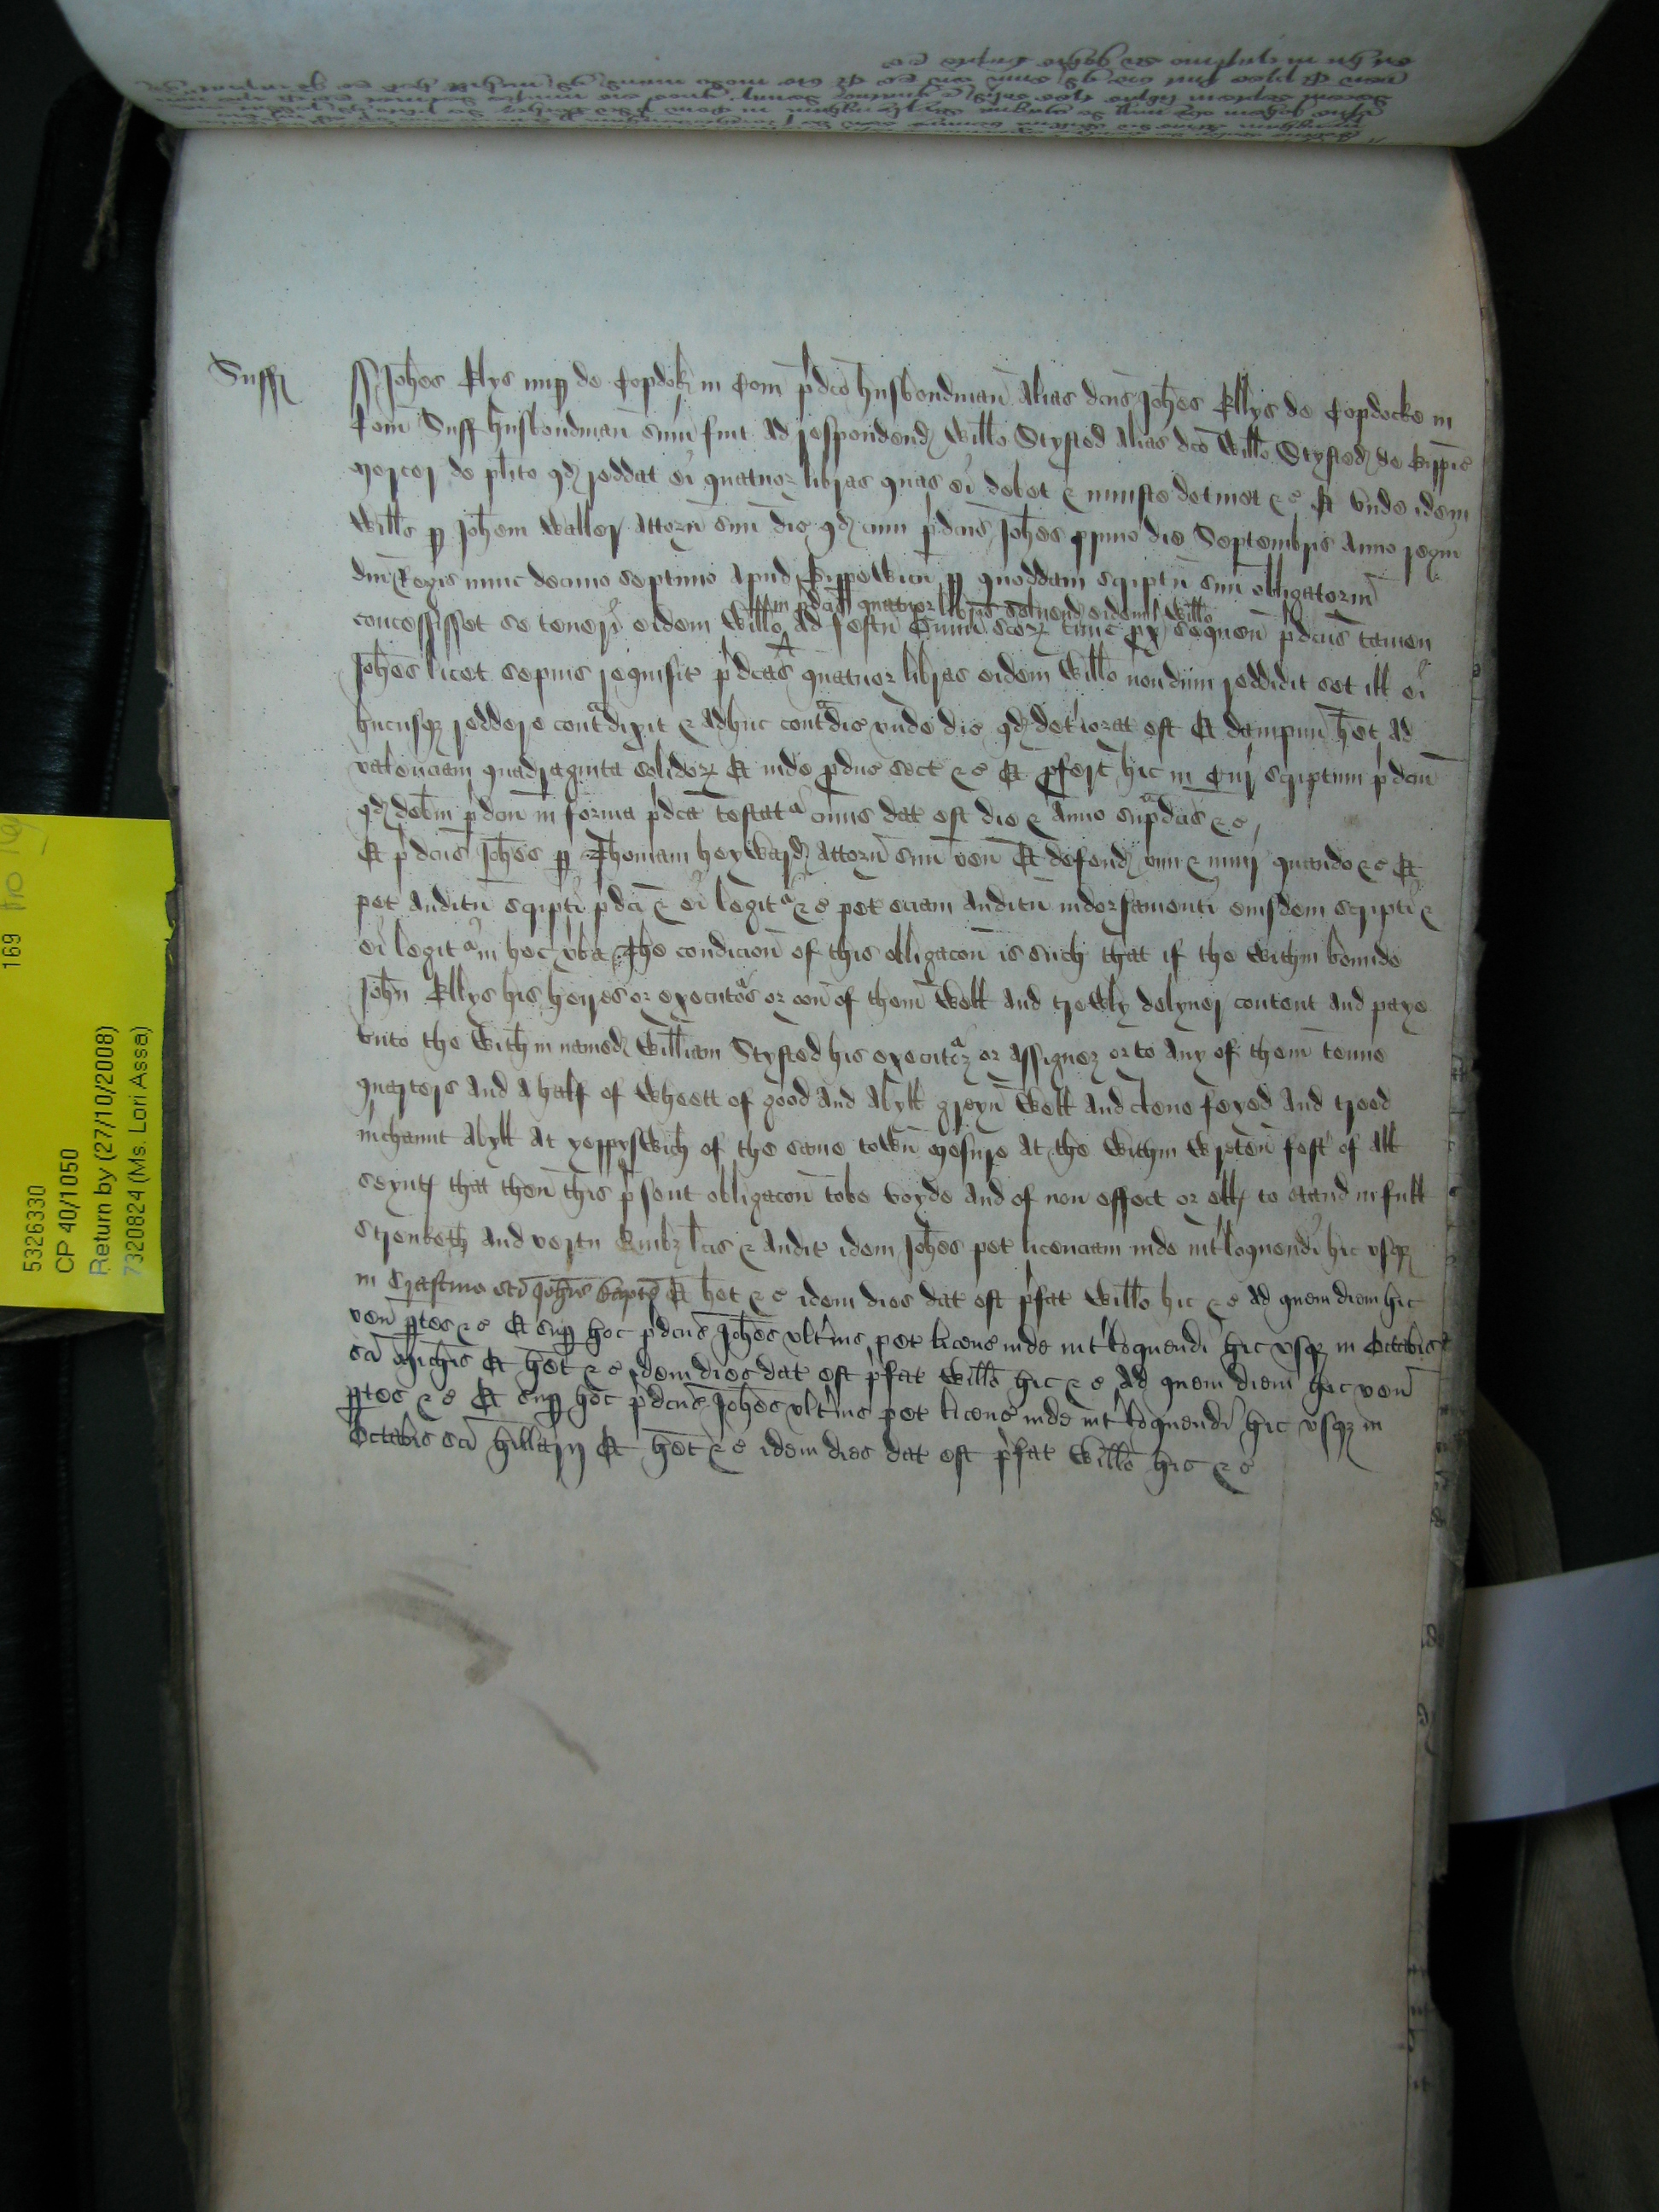 Suff
Joh̄es Elys nup de Copdok in Com p̄dco husbondman Alias dcus Joh̄es Ellys de Copdocke in
Com Suff husbondman sum fuit ad respondend Willo Stysted alias dco Willo Stysted de
mercer de plito qd reddat ei quatuor libras quas ei debet & iniuste detinet &c Et unde idem
Willo p Joh̄em Waller attorn suu dic qd cum p̄dcus Joh̄es primo die Septembris Anno regni
dni Regis nunc decimo septimo apud Gippewicu p quoddam scriptu suu obligatoriu
in p̄dcis quatuor libris solvend eidem Willo
concessisset se teneri eidem Willo ad festu Omniu scor tunc px sequen p̄dcus tamen
Joh̄es licet sepius requisit p̄dcas quatuor libras eidem Willo nondum reddidit set ill ei
hucusq reddere contadixit & adhuc contadic unde dic qd deterorat est Et dampnu het ad
valenciam quadraginta solidor Et inde pduc sect &c Et pfert hic in Cur scriptum p̄dcu
qd debm p̄dcm in forma p̄dca testata cuius dat est die & Anno supadcis &c
Et p̄dcus Joh̄es p Thomam heyward attorn suu ven Et defend vim & iniur quando &c Et
pet auditu scripti p̄dci & ei legita &c pet eciam auditu indorsamenti eiusdem scripti &
ei legita in hec vba The condicion of this obligacon is such that if the within bounde
John Ellys his heyres or executos or oon of them well and trewly delyuer content and paye
vnto the within named William Stysted his executor or assignez or to any of them tenne
quarters and a half of Wheett of good and abyll greyn Well and clene feyed and treed
mchaunt abyll at yeppyswich of the same town mesure at the within wreten fest of all
seynt that then this p̄sent obligacon to be voyde and of non effect or ell to stand in full
strenketh and vertu Quibz lcis & audit idem Joh̄es pet licenciam inde intloquendi hic usqz
in Crastino sci Joh̄is bapte Et het &c idem dies dat est p̄fat Willo hic &c Ad quem diem hic
ven ptes &c Et sup hoc p̄dcus Joh̄es ultius pet licenc inde intloquendi hic usqz in Octabis
sci michis Et het &c idem dies dat est p̄fat Willo hic &c Ad quem diem hic ven
ptes &c Et sup hoc p̄dcus Joh̄es ultius pet licenc inde intloquendi hic usqz in
Octabis sci hillarij Et het &c idem dies dat est p̄fat Willo hic &c
169
5326330
CP 40/1050
Return by (27/10/2008)
7320824 (Ms. Lori Assa)